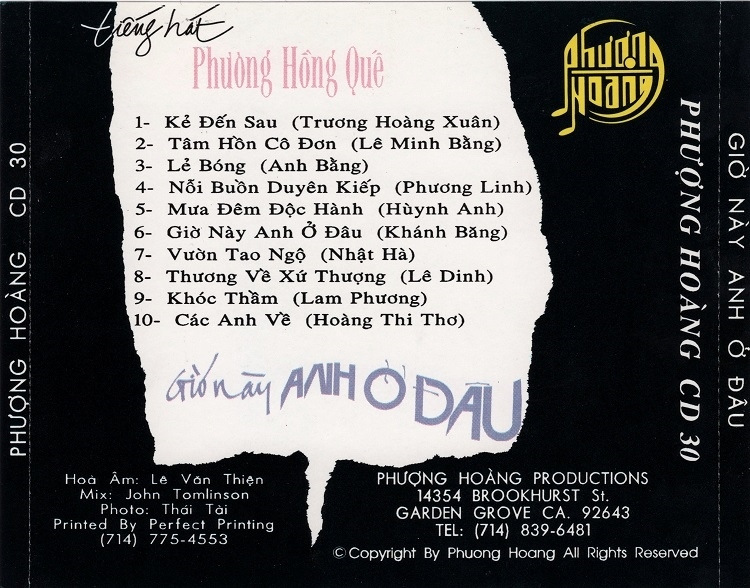 tiếng hát
Phường Hồng Quê
1- Kẻ Đến Sau (Trương Hoàng Xuân)
2- Tâm Hồn Cô Đơn (Lê Minh Bằng)
3- Lẻ Bóng (Anh Bằng)
4- Nỗi Buồn Duyên Kiếp (Phương Linh)
5- Mưa Đêm Độc Hành (Hùynh Anh)
6- Giờ Này Anh Ở Đâu (Khánh Băng)
7- Vườn Tao Ngộ (Nhật Hà)
8- Thương Về Xứ Thượng (Lê Dinh)
9- Khóc Thầm (Lam Phương)
10- Các Anh Về (Hoàng Thi Thơ)
Giờ này ANH Ở ĐÂU
Hoà Âm: Lê Văn Thiện
Mix: John Tomlinson
Photo: Thái Tài
Printed By Perfect Printing
(714) 775-4553
PHƯỢNG HOÀNG PRODUCTIONS
14354 BROOKHURST St.
GARDEN GROVE CA. 92643
TEL: (714) 839-6481
© Copyright By Phuong Hoang All Rights Reserved
Phượng
Hoàng
PHƯỢNG HOÀNG CD 30
PHƯỢNG HOÀNG CD 30
GIỜ NÀY ANH Ở ĐÂU